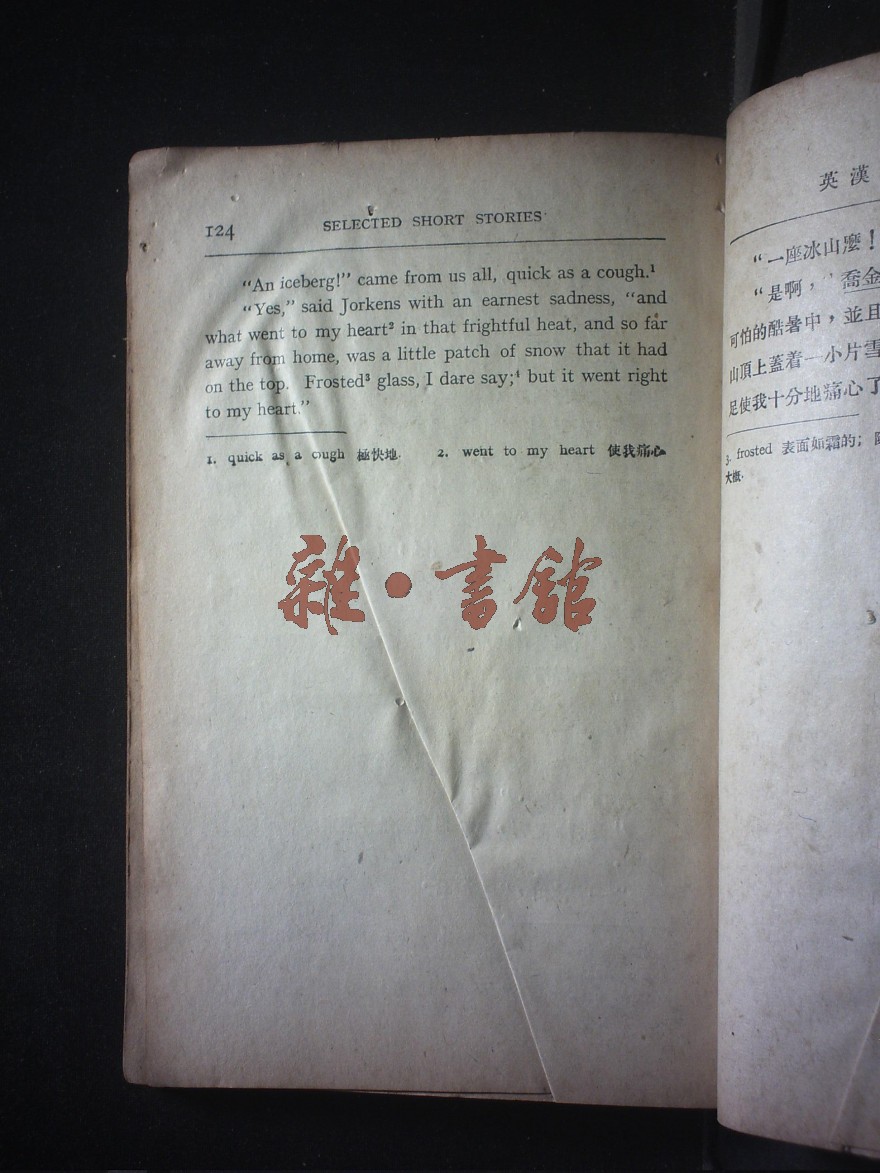 124 SELECTED SHORT STORIES
"An iceberg!" came from us all, quick as a cough.¹
"Yes," said Jorkens with an earnest sadness, "and
what went to my heart² in that frightful heat, and so far
away from home, was a little patch of snow that it had
on the top. Frosted³ glass, I dare say;⁴ but it went right
to my heart."
1. quick as a cough 極快地. 2. went to my heart 使我痛心.
雜·書館
英漢
"一座冰山麼!
"是啊,"喬金
可怕的酷暑中,並且
山頂上蓋着一小片雪
足使我十分地痛心了
3. frosted 表面如霜的;
大概.